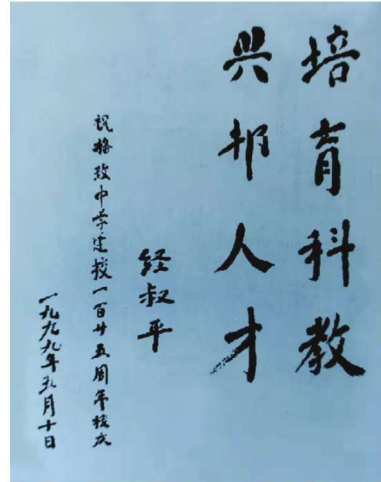 培育科教
兴邦人才
经叔平
祝格致中学建校一百廿五周年校庆
一九九九年五月十日